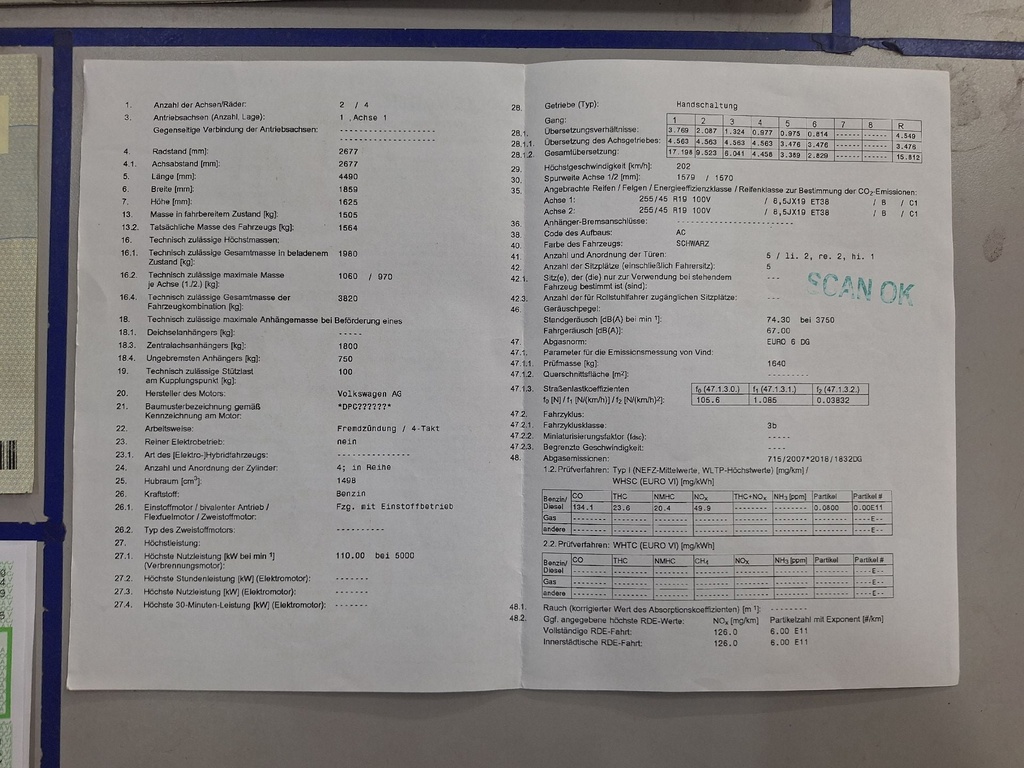 1. Anzahl der Achsen/Räder: 2 / 4
3. Antriebsachsen (Anzahl, Lage): 1 , Achse 1
Gegenseitige Verbindung der Antriebsachsen: --------------------
4. Radstand [mm]: 2677
4.1. Achsabstand [mm]: 2677
5. Länge [mm]: 4490
6. Breite [mm]: 1859
7. Höhe [mm]: 1625
13. Masse in fahrbereitem Zustand [kg]: 1505
13.2. Tatsächliche Masse des Fahrzeugs [kg]: 1564
16. Technisch zulässige Höchstmassen:
16.1. Technisch zulässige Gesamtmasse in beladenem 1980
Zustand [kg]:
16.2. Technisch zulässige maximale Masse 1060 / 970
je Achse (1./2.) [kg]:
16.4. Technisch zulässige Gesamtmasse der 3820
Fahrzeugkombination [kg]:
18. Technisch zulässige maximale Anhängemasse bei Beförderung eines
18.1. Deichselanhängers [kg]: -----
18.3. Zentralachsanhängers [kg]: 1800
18.4. Ungebremsten Anhängers [kg]: 750
19. Technisch zulässige Stützlast 100
am Kupplungspunkt [kg]:
20. Hersteller des Motors: Volkswagen AG
21. Baumusterbezeichnung gemäß *DPC??????*
Kennzeichnung am Motor:
22. Arbeitsweise: Fremdzündung / 4-Takt
23. Reiner Elektrobetrieb: nein
23.1. Art des [Elektro-]Hybridfahrzeugs: ---------------
24. Anzahl und Anordnung der Zylinder: 4; in Reihe
25. Hubraum [cm³]: 1498
26. Kraftstoff: Benzin
26.1. Einstoffmotor / bivalenter Antrieb / Fzg. mit Einstoffbetrieb
Flexfuelmotor / Zweistoffmotor:
26.2. Typ des Zweistoffmotors: ----------
27. Höchstleistung:
27.1. Höchste Nutzleistung [kW bei min⁻¹] 110.00 bei 5000
(Verbrennungsmotor):
27.2. Höchste Stundenleistung [kW] (Elektromotor): -------
27.3. Höchste Nutzleistung [kW] (Elektromotor): -------
27.4. Höchste 30-Minuten-Leistung [kW] (Elektromotor): -------
28. Getriebe (Typ): Handschaltung
Gang: 1 2 3 4 5 6 7 8 R
28.1. Übersetzungsverhältnisse: 3.769 2.087 1.324 0.977 0.975 0.814 ------ ------ 4.549
28.1.1. Übersetzung des Achsgetriebes: 4.563 4.563 4.563 4.563 3.476 3.476 ------ ------ 3.476
28.1.2. Gesamtübersetzung: 17.198 9.523 6.041 4.458 3.389 2.829 ------ ------ 15.812
29. Höchstgeschwindigkeit [km/h]: 202
30. Spurweite Achse 1/2 [mm]: 1579 / 1570
35. Angebrachte Reifen / Felgen / Energieeffizienzklasse / Reifenklasse zur Bestimmung der CO₂-Emissionen:
Achse 1: 255/45 R19 100V / 8,5JX19 ET38 / B / C1
Achse 2: 255/45 R19 100V / 8,5JX19 ET38 / B / C1
36. Anhänger-Bremsanschlüsse: ------------------------
38. Code des Aufbaus: AC
40. Farbe des Fahrzeugs: SCHWARZ
41. Anzahl und Anordnung der Türen: 5 / li. 2, re. 2, hi. 1
42. Anzahl der Sitzplätze (einschließlich Fahrersitz): 5
42.1. Sitz(e), der (die) nur zur Verwendung bei stehendem ---
Fahrzeug bestimmt ist (sind):
SCAN OK
42.3. Anzahl der für Rollstuhlfahrer zugänglichen Sitzplätze: ---
46. Geräuschpegel:
Standgeräusch [dB(A) bei min⁻¹]: 74.30 bei 3750
Fahrgeräusch [dB(A)]: 67.00
47. Abgasnorm: EURO 6 DG
47.1. Parameter für die Emissionsmessung von Vind:
47.1.1. Prüfmasse [kg]: 1640
47.1.2. Querschnittsfläche [m²]: ---------
47.1.3. Straßenlastkoeffizienten f₀ (47.1.3.0.) f₁ (47.1.3.1.) f₂ (47.1.3.2.)
f₀ [N] / f₁ [N/(km/h)] / f₂ [N/(km/h)²]: 105.6 1.085 0.03832
47.2. Fahrzyklus:
47.2.1. Fahrzyklusklasse: 3b
47.2.2. Miniaturisierungsfaktor (fdsc): -----
47.2.3. Begrenzte Geschwindigkeit: ----
48. Abgasemissionen: 715/2007*2018/1832DG
1.2. Prüfverfahren: Typ I (NEFZ-Mittelwerte, WLTP-Höchstwerte) [mg/km] /
WHSC (EURO VI) [mg/kWh]
Benzin/ Diesel CO THC NMHC NOx THC+NOx NH₃ [ppm] Partikel Partikel #
134.1 23.6 20.4 49.9 ------- ------- 0.0800 0.00E11
Gas ------- ------- ------- ------- ------- ------- ------- ----E--
andere ------- ------- ------- ------- ------- ------- ------- ----E--
2.2. Prüfverfahren: WHTC (EURO VI) [mg/kWh]
Benzin/ Diesel CO THC NMHC CH₄ NOx NH₃ [ppm] Partikel Partikel #
------- ------- ------- ------- ------- ------- ------- ----E--
Gas ------- ------- ------- ------- ------- ------- ------- ----E--
andere ------- ------- ------- ------- ------- ------- ------- ----E--
48.1. Rauch (korrigierter Wert des Absorptionskoeffizienten) [m⁻¹]: --------
48.2. Ggf. angegebene höchste RDE-Werte: NOx [mg/km] Partikelzahl mit Exponent [#/km]
Vollständige RDE-Fahrt: 126.0 6.00 E11
Innerstädtische RDE-Fahrt: 126.0 6.00 E11